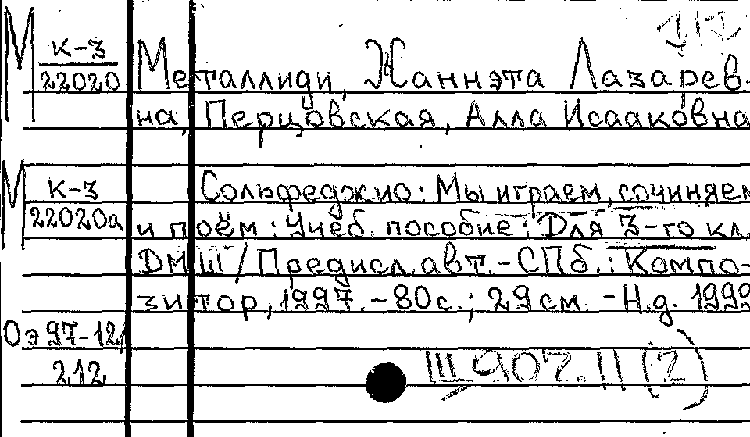 М к-3
22020
Металлиди, Жаннэта Лазарев-
на, Перцовская, Алла Исааковна
М к-3
22020а
Сольфеджио: Мы играем, сочиняем
и поём: Учеб. пособие: Для 3-го кл.
ДМШ / Предисл. авт. - СПб.: Компо-
зитор, 1997. - 80с.; 29см. - Н.д. 1999
Оэ97-12/
212
III 907.II (2)